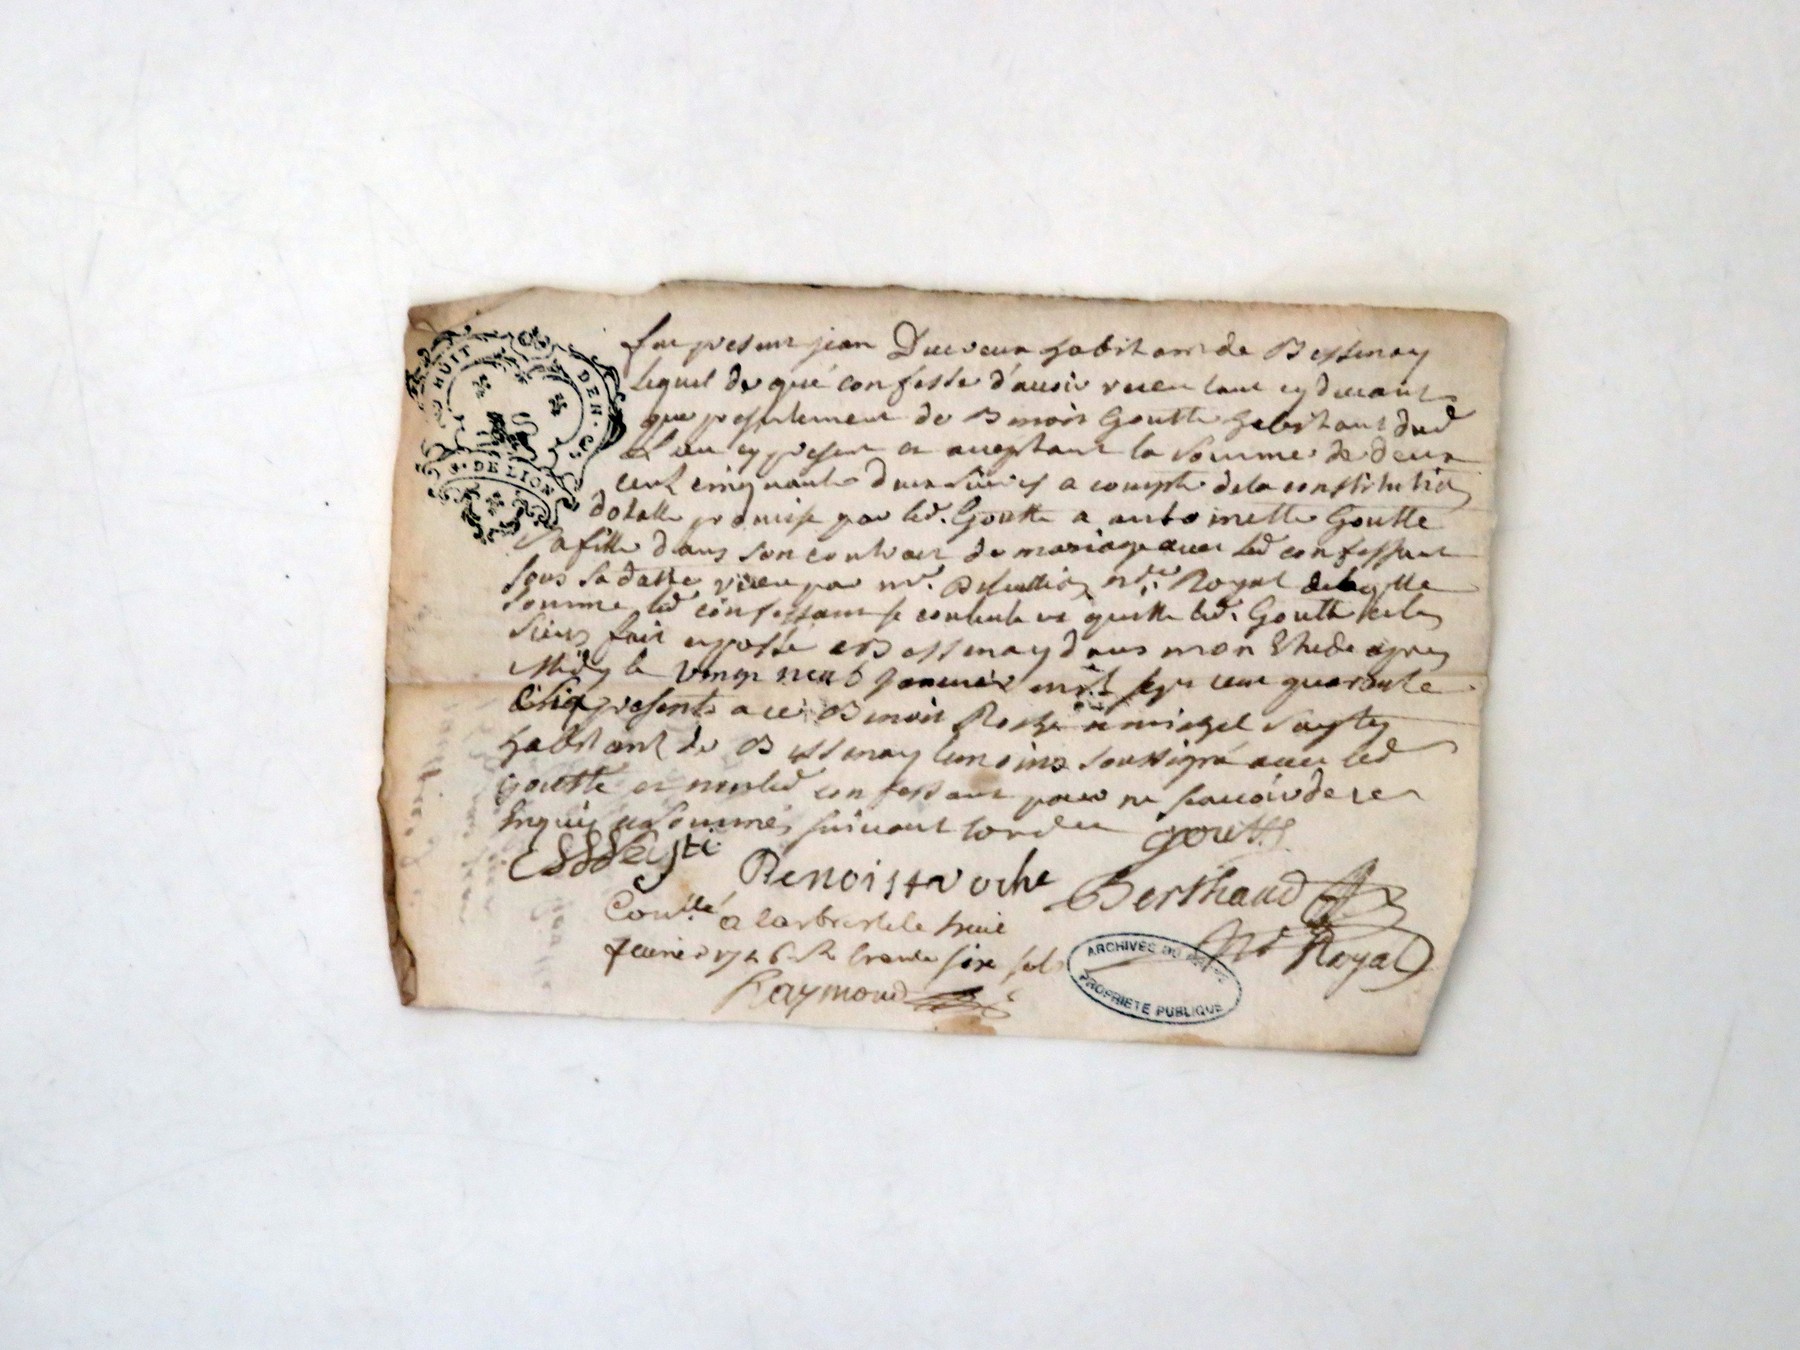 HUIT DEN.
G. DE LION
fut present jean Ducreux habitant de Bessenay
Lequel de gré confesse d'auoir receu tant cydeuant
que presentement de Benoit Goutte habitant dud
Lieu cy present et aceptant la somme de deux
cent cinquante deux liures a compte de la constitution
dotalle promise par led. Goutte a antoinette Goutte
Sa fille dans son contrat de mariage auec led confessant
sous sa datte receu par mr. nre. Royal de laqlle
somme led confessant se contente et quitte led. Goutte et les
siens fait et passé a Bessenay dans mon Etude apres
Midy le vingt neuf januier mil sept cent quarante
Six presents a ce Benoit Roche et michel
habitant de Bessenay temoins soussigné auec led
goutte et non led confessant pour ne scauoir de ce
Enquis et sommés suiuant lordce goutte
Benoist roche Berthaud
Conllé a larbresle le huit
feurier 1746 R trente six sols
Nre Royal
Raymond
ARCHIVES DU RHÔNE
PROPRIÉTÉ PUBLIQUE